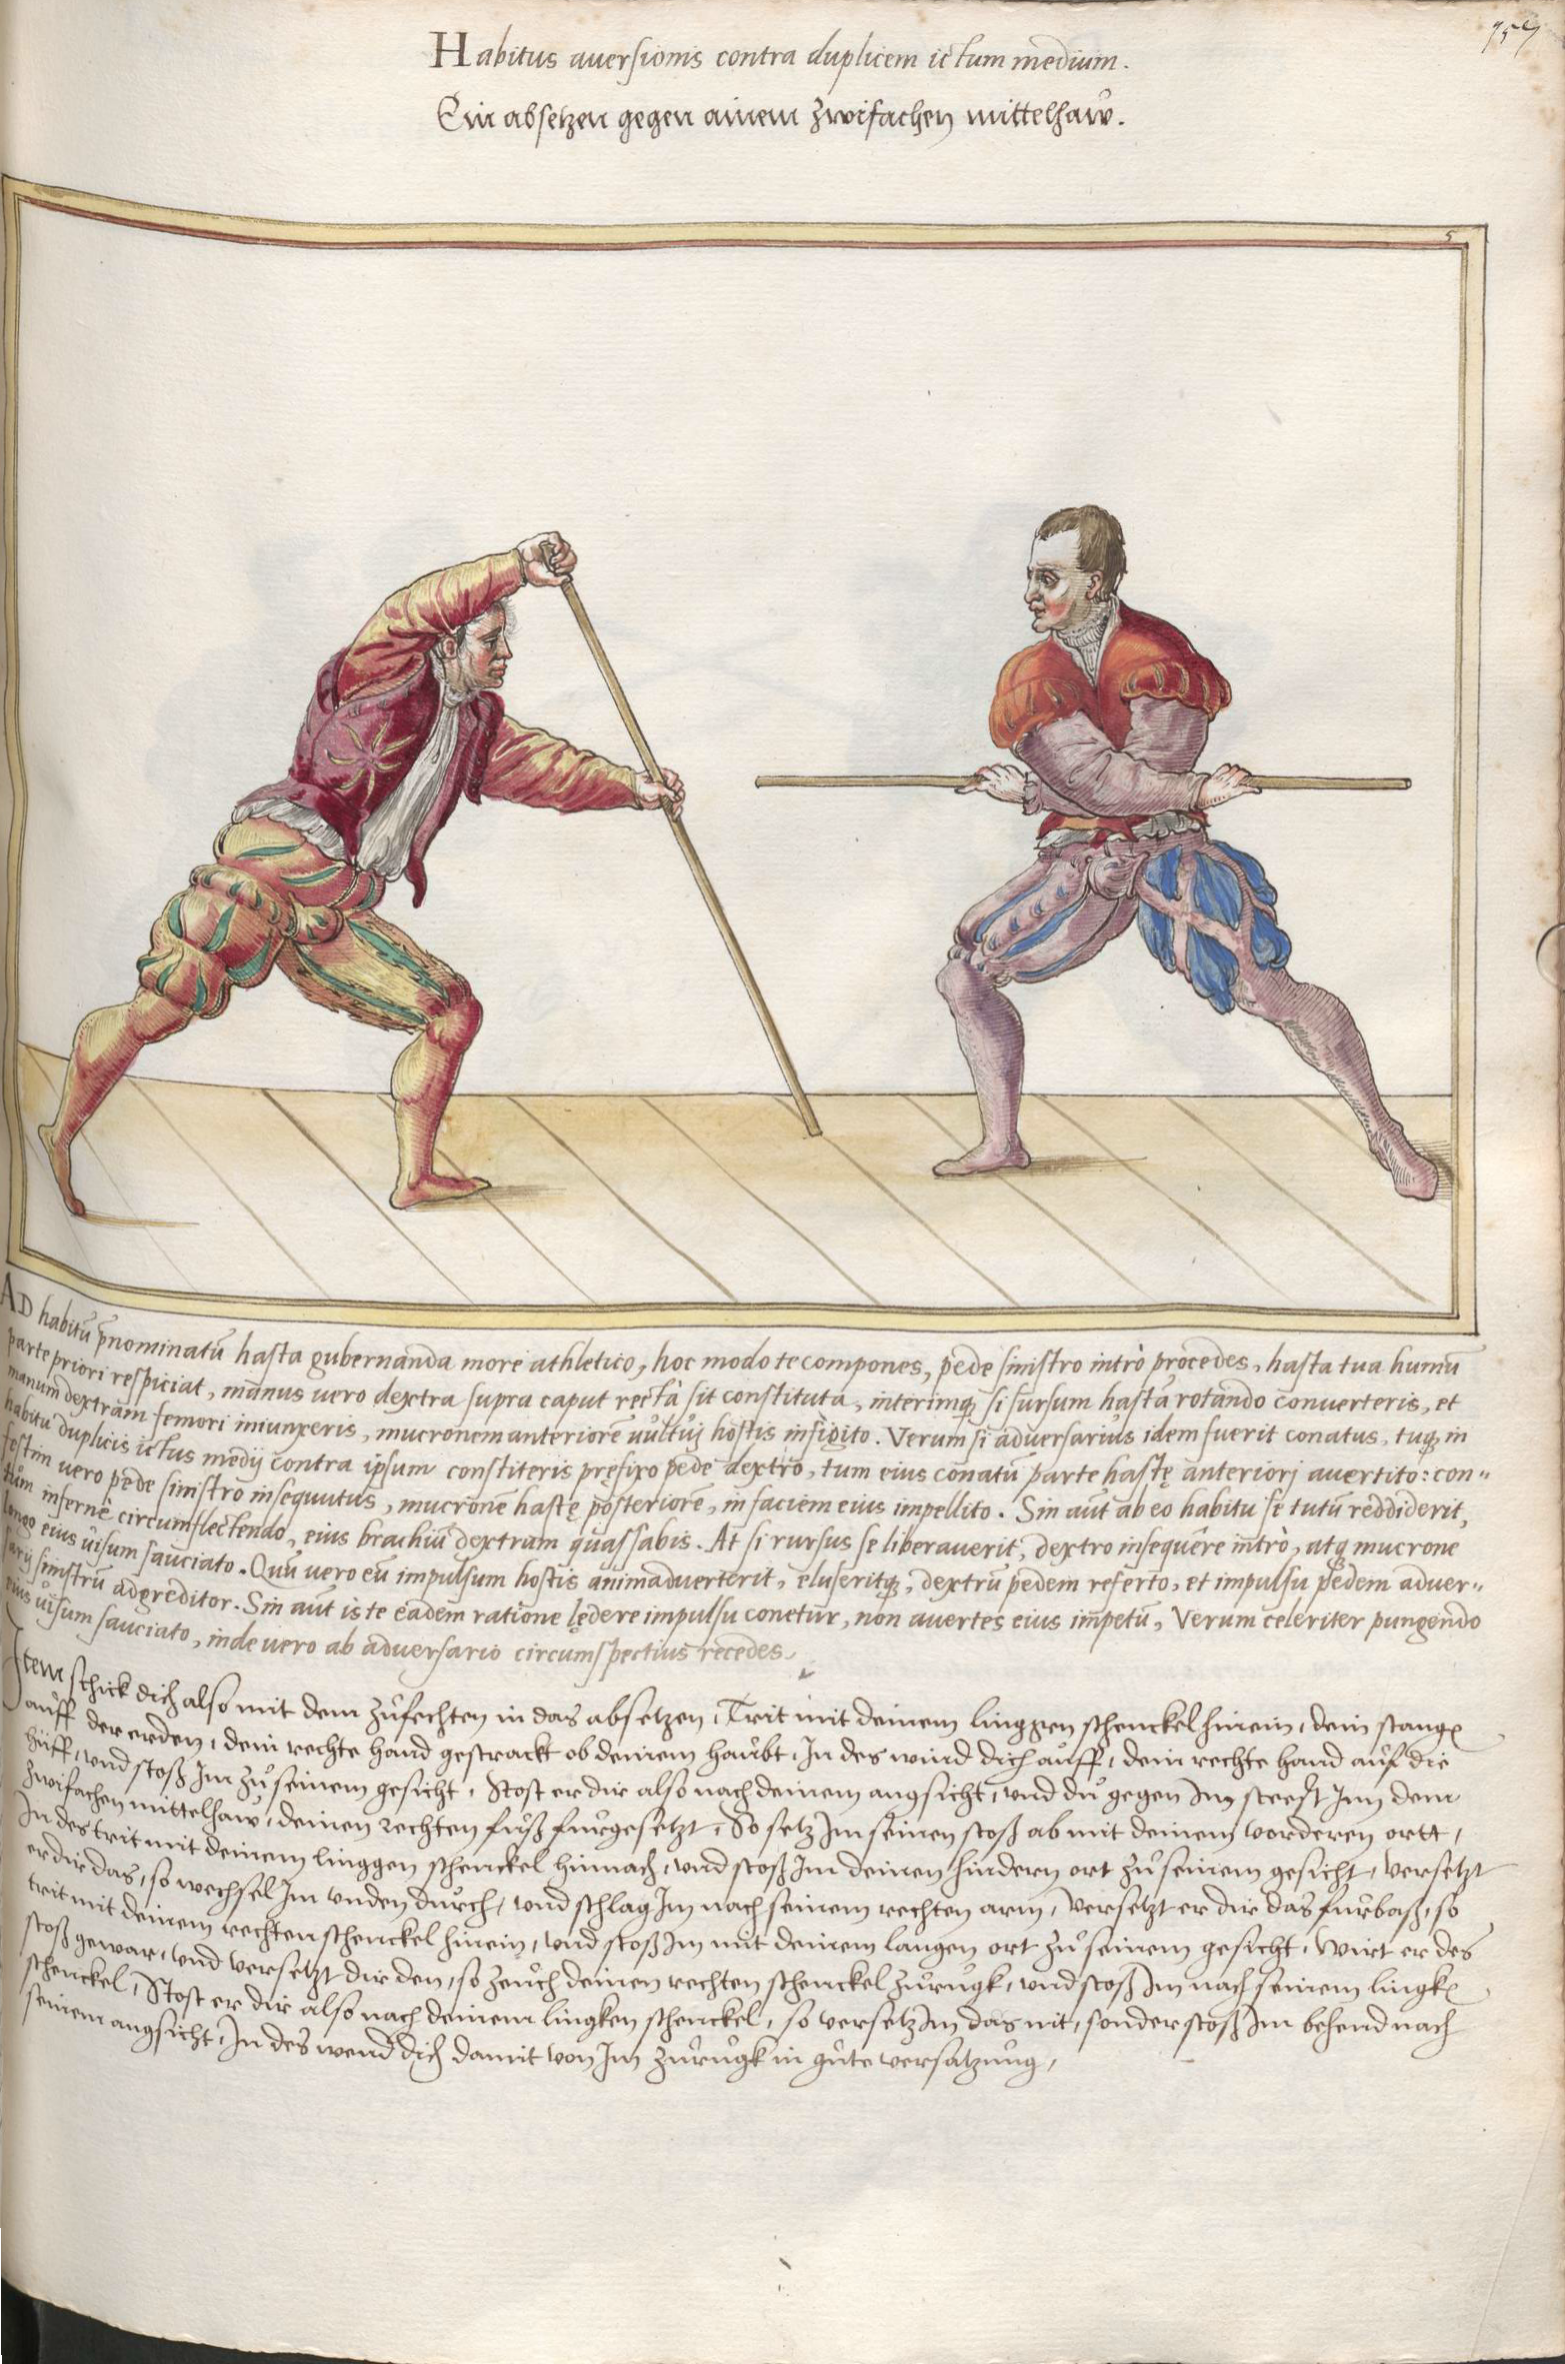 Habitus auersionis contra duplicem ictum medium.
Ein absetzen gegen ainem zwifachen mittelhaw.
5
AD habitū p̄nominatū hasta gubernanda more athletico, hoc modo te compones, pede sinistro intrò procedes, hasta tua humū
parte priori respiciat, manus uero dextra supra caput recta sit constituta, interimq; si sursum hastā rotando conuerteris, et
manum dextram femori iniunxeris, mucronem anteriorē uultuj hostis infigito. Verum si aduersarius idem fuerit conatus, tuq; in
habitu duplicis ictus medij contra ipsum constiteris prefixo pede dextro, tum eius conatū parte hastę anteriorj auertito: con„
festim uero pede sinistro insequutus, mucronē hastę posteriorē, in faciem eius impellito. Sin aūt ab eo habitu se tutū reddiderit,
tum infernè circumflectendo, eius brachiū dextrum quassabis. At si rursus se liberauerit, dextro insequêre intrò, atq; mucrone
longo eius uisum sauciato. Quū uero eū impulsum hostis animaduerterit, eluseritq;, dextrū pedem referto, et impulsu pedem aduer„
sarij sinistrū adgreditor. Sin aūt is te eadem ratione lędere impulsu conetur, non auertes eius impetū, Verum celeriter pungendo
eius uisum sauciato, inde uero ab aduersario circumspectius recedes.
Item schick dich also mit dem zůfechten in das absetzen, Trit mit deinem linggen schenckel hinein, dein stangē
auff der erden, dein rechte hand gestrackt ob deinem haubt, In des wind dich auff, dein rechte hand auf die
hüff, vnd stoß Im zů seinem gesicht, Stost er dir also nach deinem angsicht, vnd du gegen Im steest Inn dem
zwifachen mittelhaw, deinen rechten fuß furgesetzt, So setz Im seinen stoß ab mit deinem vorderen ortt,
In des trit mit deinem linggen schenckel hinnach, vnd stoß Im deinen hindern ort zů seinem gesicht, versetzt
er dir das, so wechsel Im vnden durch, vnd schlag Im nach seinem rechten arm, Versetzt er dir das furbaß, so
trit mit deinem rechten schenckel hinein, vnd stoß Im mit deinem langen ort zů seinem gesicht, Wirt er des
stoß gewar, vnd versetzt dir den, so zeuch deinen rechten schenckel zurugk, vnd stoß Im nach seinem lingkē
schenckel, Stost er dir also nach deinem lingken schenckel, so versetz Im das nit, sonder stoß Im behend nach
seinem angsicht, In des wend dich damit von Im zurugk in gute versatzung,